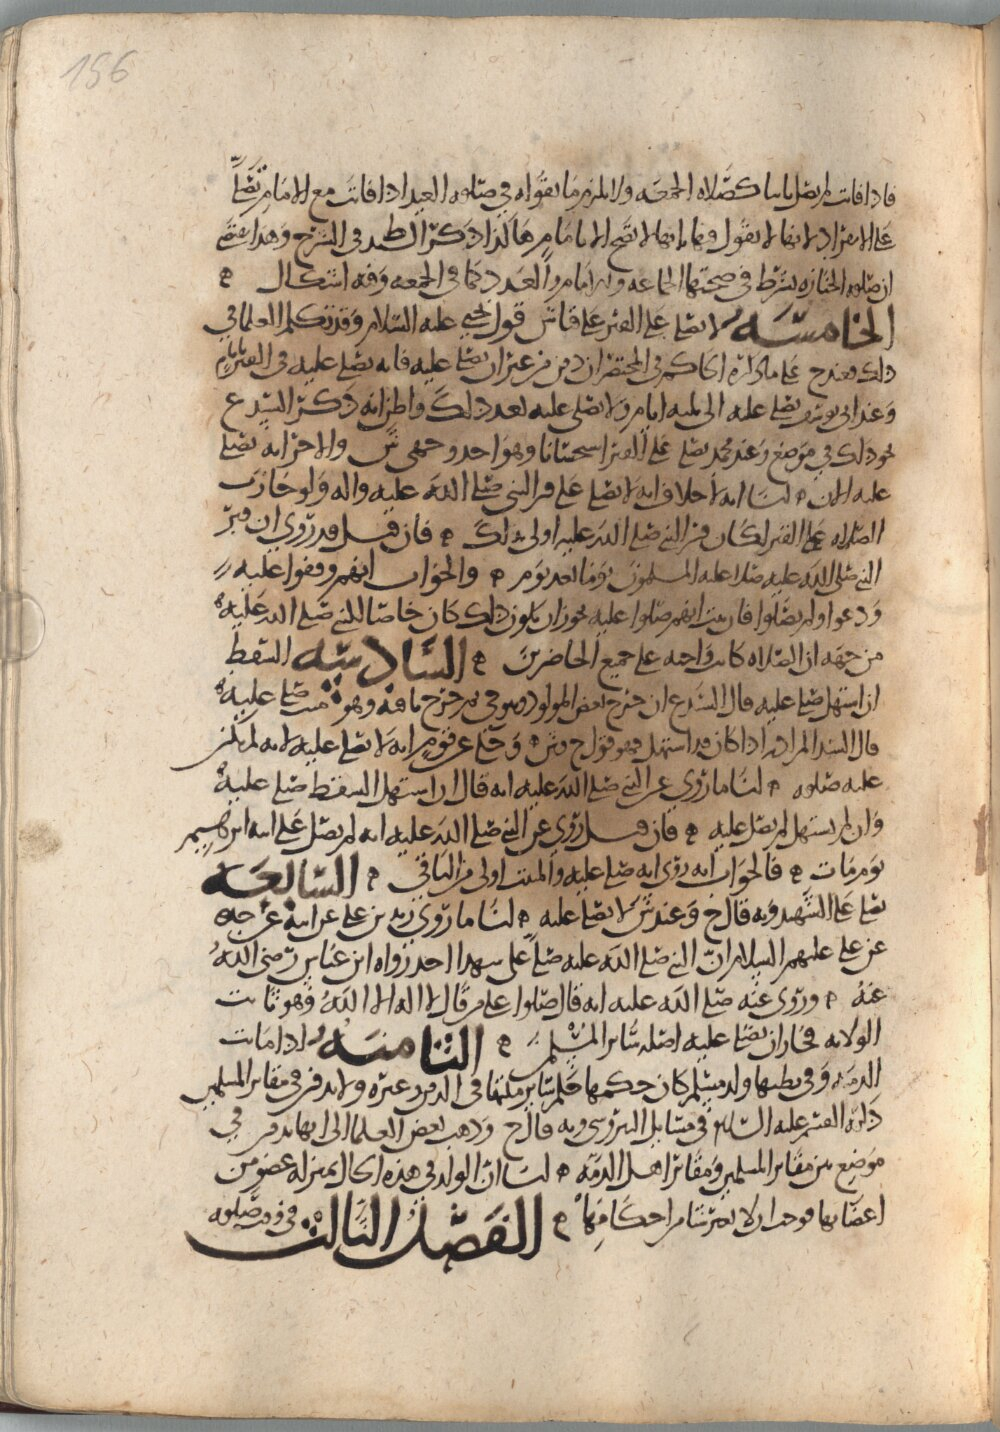 156
فاذا فاتت لم يصل ثانيا كصلاه الجمعه ولا يلزم ما يقوله في صلوه العيد اذا فاتت مع الامام يصلى
على الانفراد لانها لا يقول فيها انها لا تصح الا بامام هكذا ذكر السيد ط في الشرح وهذا يقتضي
ان صلوه الجنازه يشترط في صحتها الجماعه والامام والعدد كما في الجمعه وفيه اشكال
الخامسه لا يصلى على القبر على قياس قول يحيى عليه السلام وقد تكلم العلما في
ذلك على ما ذكره الحاكم في المختصر ان دفن من غير ان يصلى عليه فانه يصلى عليه في القبر
وعند ابي يوسف يصلى عليه الى ثلثه ايام ولا يصلى عليه بعد ذلك واظن انه ذكر السيد ع
نحو ذلك في موضع وعند محمد يصلى على القبر استحسانا وهو احد وجهي ش والاخر انه يصلى
عليه الان لنا انه لا خلاف انه لا يصلى على قبر النبي صلى الله عليه واله ولو جازت
الصلاه على القبر لكان قبر النبي صلى الله عليه اولى بذلك فان قيل قد روي ان قبر
النبي صلى الله عليه صلا عليه المسلمون يوما بعد يوم والجواب انهم وقفوا عليه
ودعوا ولم يصلوا فان ثبت انهم صلوا عليه يجوز ان يكون ذلك كان خاصا للنبي صلى الله عليه
من جهه ان الصلاه كانت واجبه على جميع الحاضرين السادسه السقط
ان استهل صلي عليه قال السيد ع ان خرج بعض المولود وهو حي ثم خرج باقيه وهو ميت صلي عليه
قال السيد المراد به اذا كان قد استهل فهو قول ح وش وحكي عن قوم انه لا يصلى عليه لانه لم يكن
عليه صلوه لنا ما روي عن النبي صلى الله عليه انه قال اذا استهل السقط صلي عليه
وان لم يستهل لم يصل عليه فان قيل روي عن النبي صلى الله عليه انه لم يصل على ابنه ابرهيم
يوم مات فالجواب انه روي انه صلى عليه والمثبت اولى من النافي السابعه
يصلى على الشهيد وبه قال ح وعند ش لا يصلى عليه لنا ما روي زيد بن علي عن ابيه عن جده
عن علي عليهم السلام ان النبي صلى الله عليه صلى على شهدا احد رواه ابن عباس رضي الله
عنه وروي عنه صلى الله عليه انه قال صلوا على من قال لا اله الا الله وهو ثابت
الولايه فجاز ان يصلى عليه اصله سائر المسلمين الثامنه اذا ماتت
الذميه وفي بطنها ولد مسلم كان حكمها حكم سائر ملتها في الدفن وغيره ولا تدفن في مقابر المسلمين
ذكره القسم عليه السلم في مسائل النيروسي وبه قال ح وذهب بعض العلما الى انها تدفن في
موضع بين مقابر المسلمين ومقابر اهل الذمه لنا ان الولد في هذه الحال بمنزله عضو من
اعضائها فوجب ان لا يغير شيئا من احكامها الفصل الثالث في صلوه